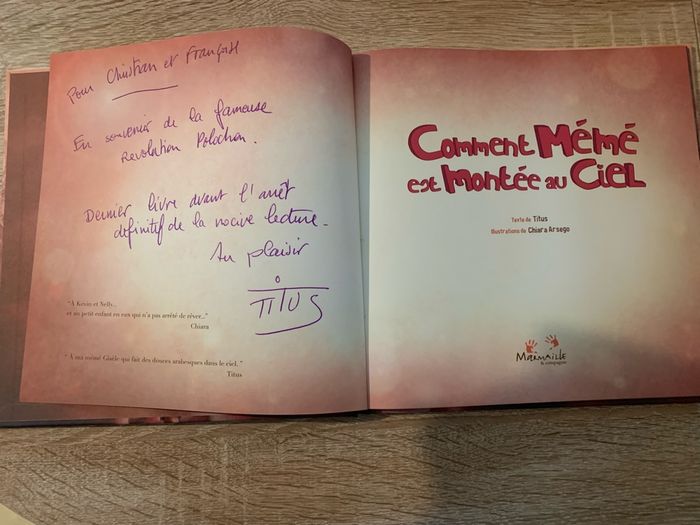 Pour Christian et Françoise
En souvenir de la fameuse
Revolution Polochon.
Dernier livre avant l'arrêt
définitif de la nocive lecture.
Au plaisir
TITUS
"À Kevin et Nelly...
et au petit enfant en eux qui n'a pas arrêté de rêver..."
Chiara
"À ma mémé Gisèle qui fait des douces arabesques dans le ciel."
Titus
Comment Mémé
est montée au Ciel
Texte de Titus
Illustrations de Chiara Arsego
Marmaille
& compagnie